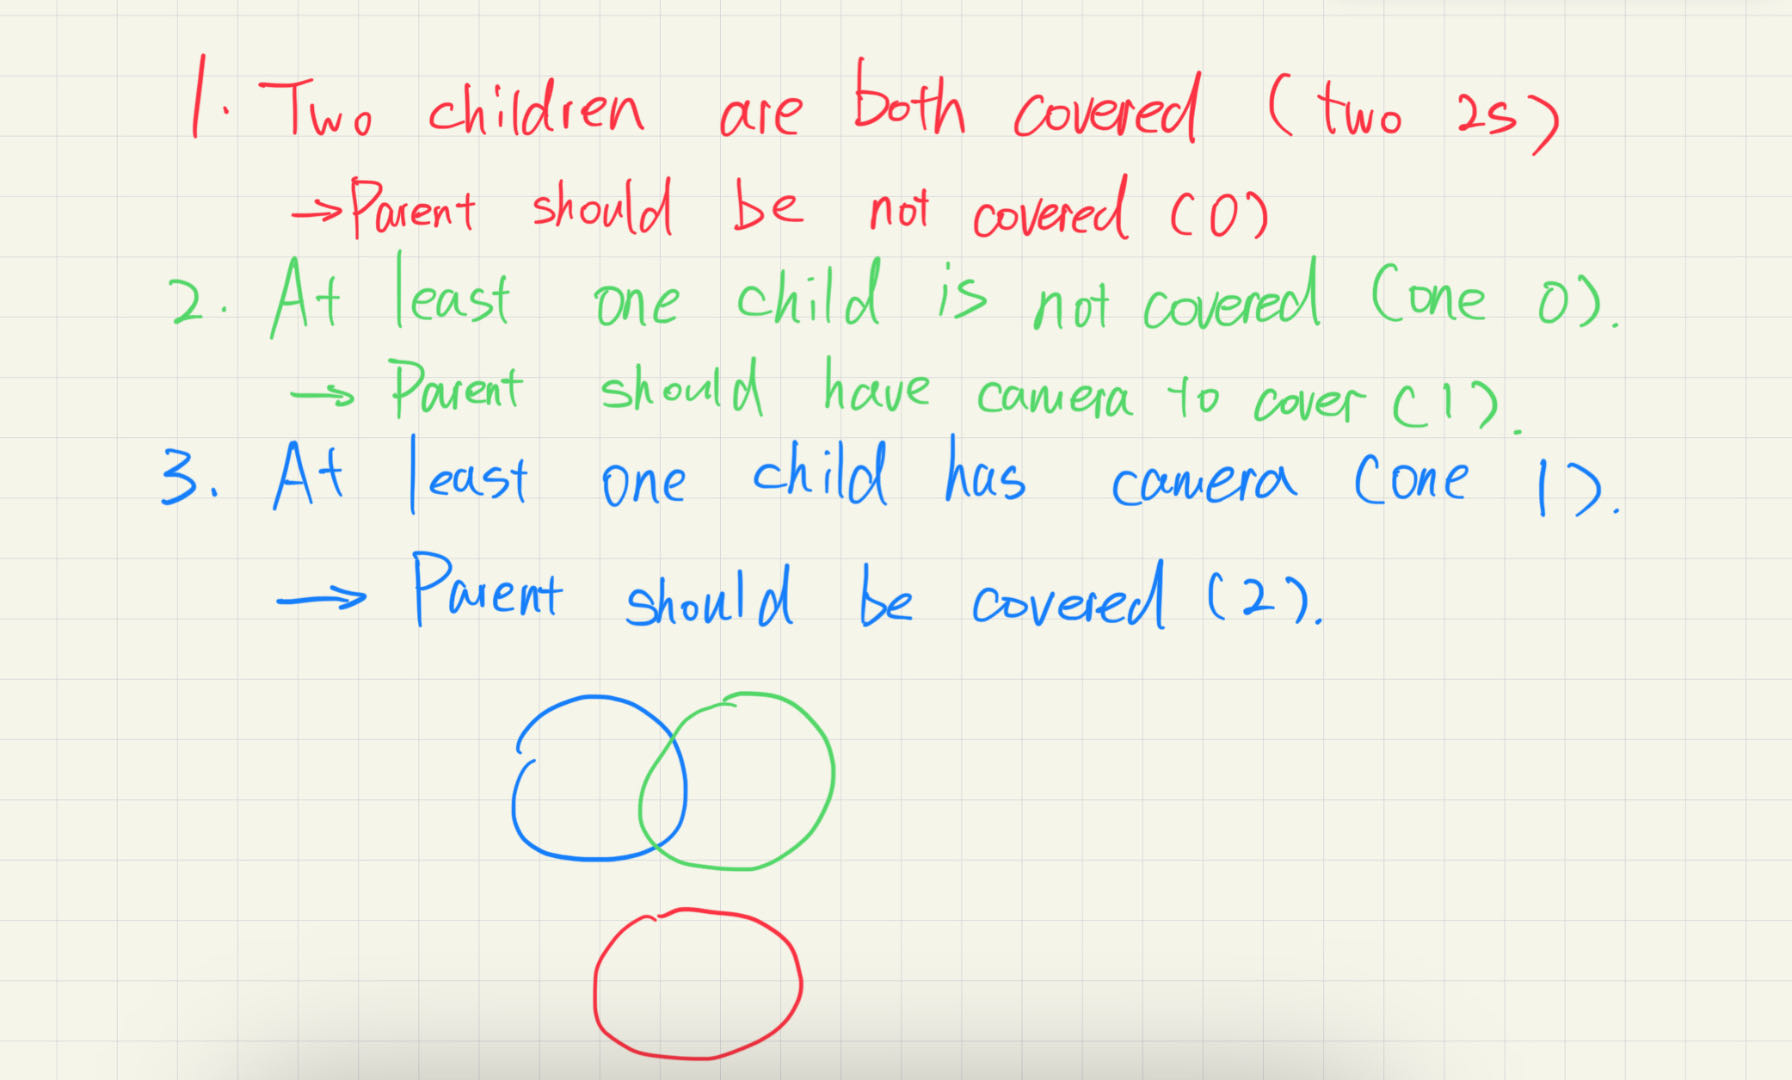 1. Two children are both covered (two 2s)
→ Parent should be not covered (0)
2. At least one child is not covered (one 0).
→ Parent should have camera to cover (1).
3. At least one child has camera (one 1).
→ Parent should be covered (2).